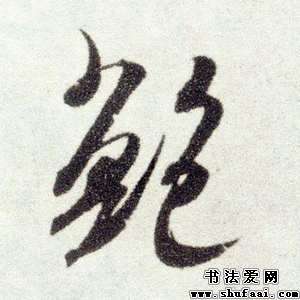 鮑
书法爱网
www.shufaai.com